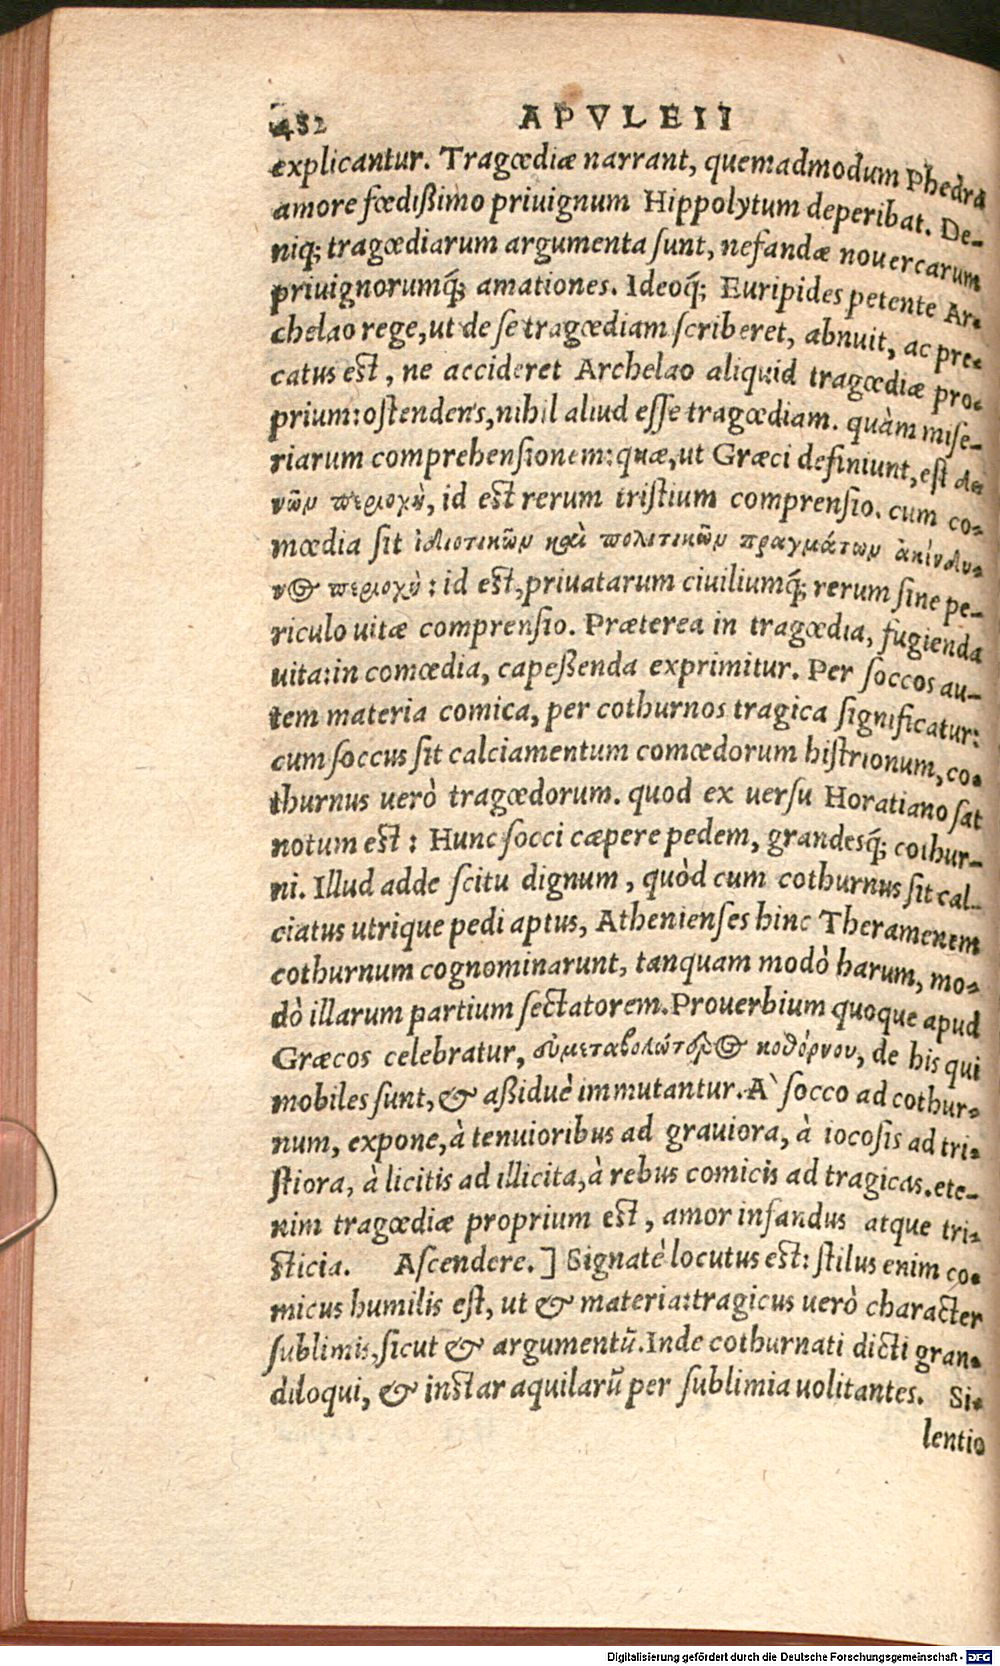 452 APVLEII
explicantur. Tragœdiæ narrant, quemadmodum Phedra
amore fœdißimo priuignum Hippolytum deperibat. De-
niq; tragœdiarum argumenta sunt, nefandæ nouercarum
priuignorumq́; amationes. Ideoq́; Euripides petente Ar-
chelao rege, ut de se tragœdiam scriberet, abnuit, ac pre-
catus est, ne accideret Archelao aliquid tragœdiæ pro-
prium: ostendens, nihil aliud esse tragœdiam. quàm mise-
riarum comprehensionem: quæ, ut Græci definiunt, est δει
νῶν περιοχὴ, id est rerum tristium comprensio. cum co-
mœdia sit ἰδιοτικῶν καὶ πολιτικῶν πραγμάτων ἀκίνδυ-
νος περιοχὴ: id est, priuatarum ciuiliumq́; rerum sine pe-
riculo uitæ comprensio. Præterea in tragœdia, fugienda
uita: in comœdia, capeßenda exprimitur. Per soccos au-
tem materia comica, per cothurnos tragica significatur:
cum soccus sit calciamentum comœdorum histrionum, co-
thurnus uerò tragœdorum. quod ex uersu Horatiano sat
notum est: Hunc socci cæpere pedem, grandesq́; cothur-
ni. Illud adde scitu dignum, quòd cum cothurnus sit cal-
ciatus utrique pedi aptus, Athenienses hinc Theramenem
cothurnum cognominarunt, tanquam modò harum, mo-
dò illarum partium sectatorem. Prouerbium quoque apud
Græcos celebratur, κοθόρνου, de his qui
mobiles sunt, & aßiduè immutantur. A` socco ad cothur-
num, expone, à tenuioribus ad grauiora, à iocosis ad tri-
stiora, à licitis ad illicita, à rebus comicis ad tragicas. ete-
nim tragœdiæ proprium est, amor infandus atque tri-
sticia. Ascendere.] Signatè locutus est: stilus enim co-
micus humilis est, ut & materia: tragicus uerò character
sublimis, sicut & argumentũ. Inde cothurnati dicti gran-
diloqui, & instar aquilarũ per sublimia uolitantes. Si-
lentio
Digitalisierung gefördert durch die Deutsche Forschungsgemeinschaft - DFG